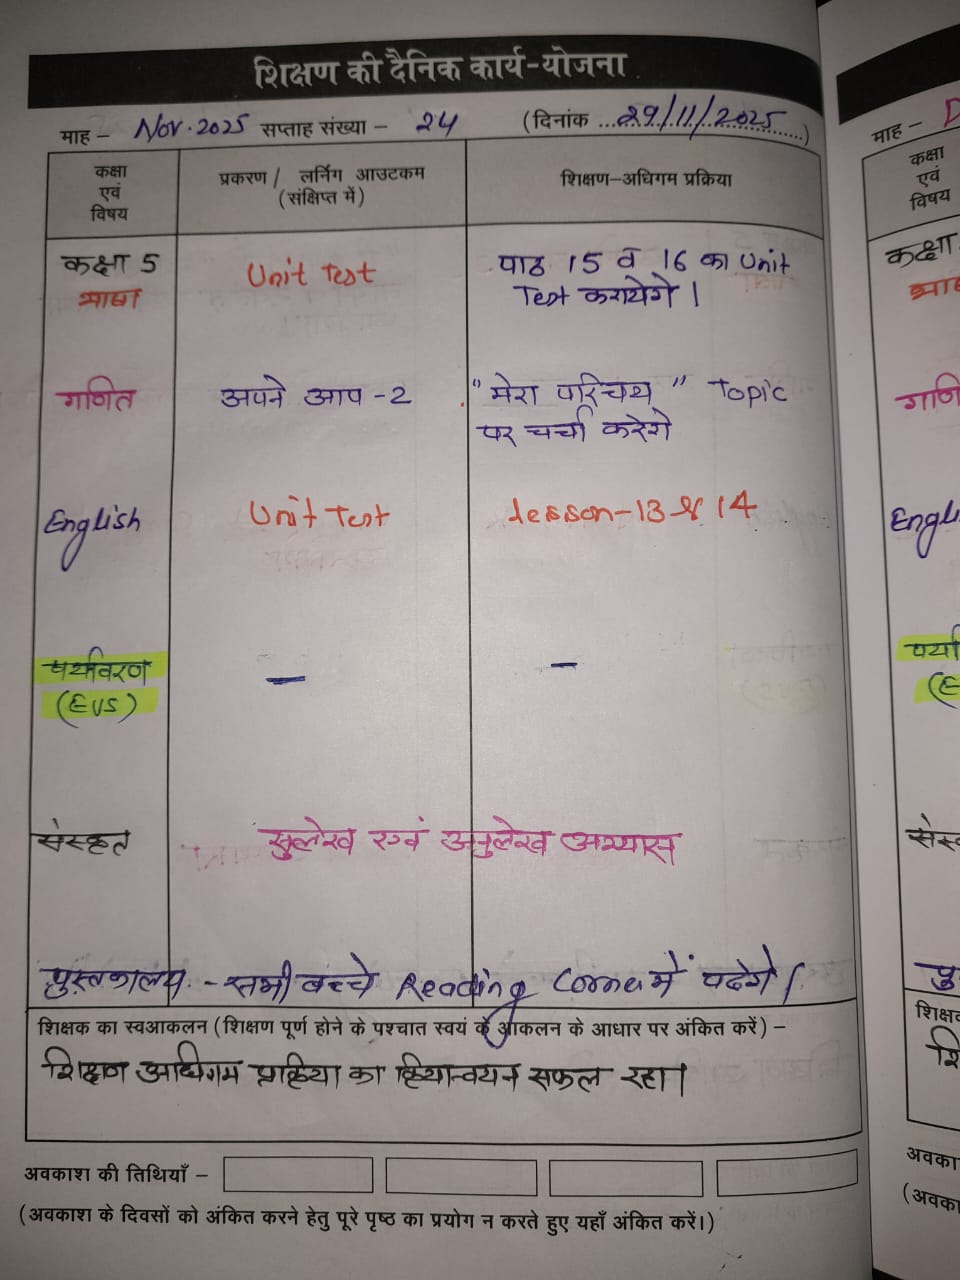 शिक्षण की दैनिक कार्य-योजना
माह - Nov. 2025 सप्ताह संख्या - 24 (दिनांक ...29/11/2025...)
कक्षा एवं विषय
प्रकरण / लर्निंग आउटकम (संक्षिप्त में)
शिक्षण-अधिगम प्रक्रिया
कक्षा 5
भाषा
Unit Test
पाठ 15 व 16 का Unit
Test करायेगे।
गणित
अपने आप -2
"मेरा परिचय" Topic
पर चर्चा करेगे
English
Unit Test
lesson-13 & 14
पर्यावरण
(EVS)
-
-
संस्कृत
सुलेख एवं अनुलेख अभ्यास
पुस्तकालय - सभी बच्चे Reading Corner में पढेगे।
शिक्षक का स्वआकलन (शिक्षण पूर्ण होने के पश्चात स्वयं के आकलन के आधार पर अंकित करें) -
शिक्षण अधिगम प्रक्रिया का क्रियान्वयन सफल रहा।
अवकाश की तिथियाँ -
(अवकाश के दिवसों को अंकित करने हेतु पूरे पृष्ठ का प्रयोग न करते हुए यहाँ अंकित करें।)
माह -
कक्षा
एवं
विषय